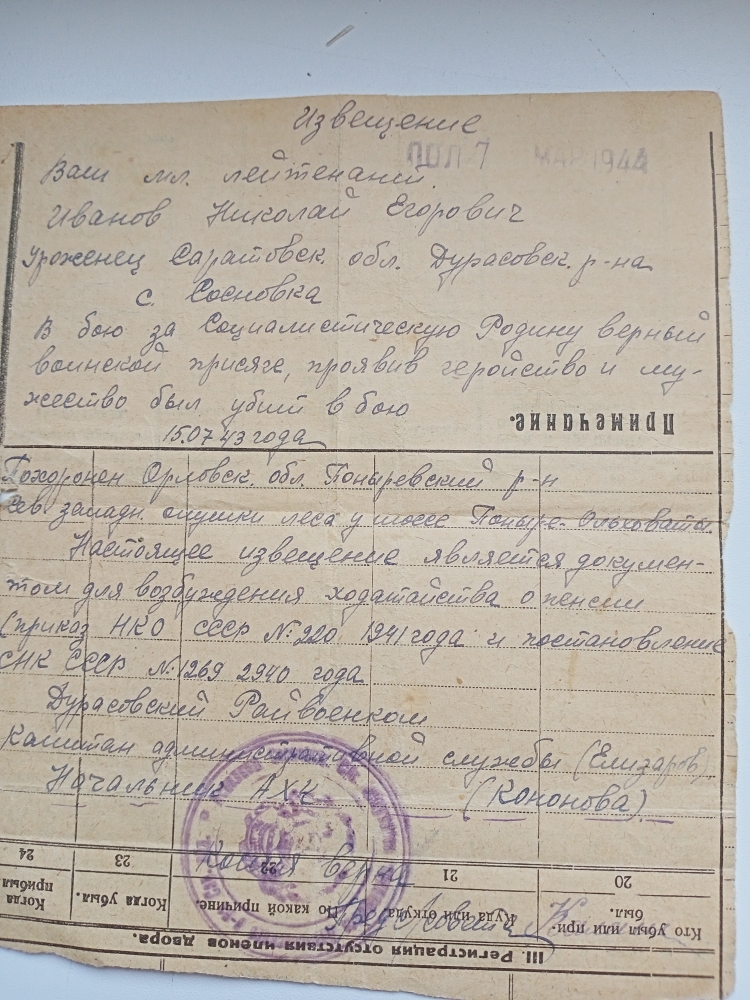 Извещение
МАР 1944
Ваш мл. лейтенант
Иванов Николай Егорович
Уроженец Саратовск. обл. Дурасовск. р-на
с. Сосновка
В бою за Социалистическую Родину верный
воинской присяге, проявив геройство и му-
жество был убит в бою
15.07.43 года
Примечание.
Похоронен Орловск. обл. Поныревский р-н
сев. западн. опушки леса у шоссе Поныре-Ольховаты.
Настоящее извещение является докумен-
том для возбуждения ходатайства о пенсии
(приказ НКО СССР №220 1941 года и постановление
СНК СССР №1269 2940 года
Дурасовский Райвоенком
Капитан административной службы (Елизаров)
Начальник АХЧ (Кононова)
Копия верна
20 21 22 23 24
Кто убыл или при-
был.
Куда или откуда.
По какой причине.
Когда убыл.
Когда
прибыл
III. Регистрация отсутствия членов двора.